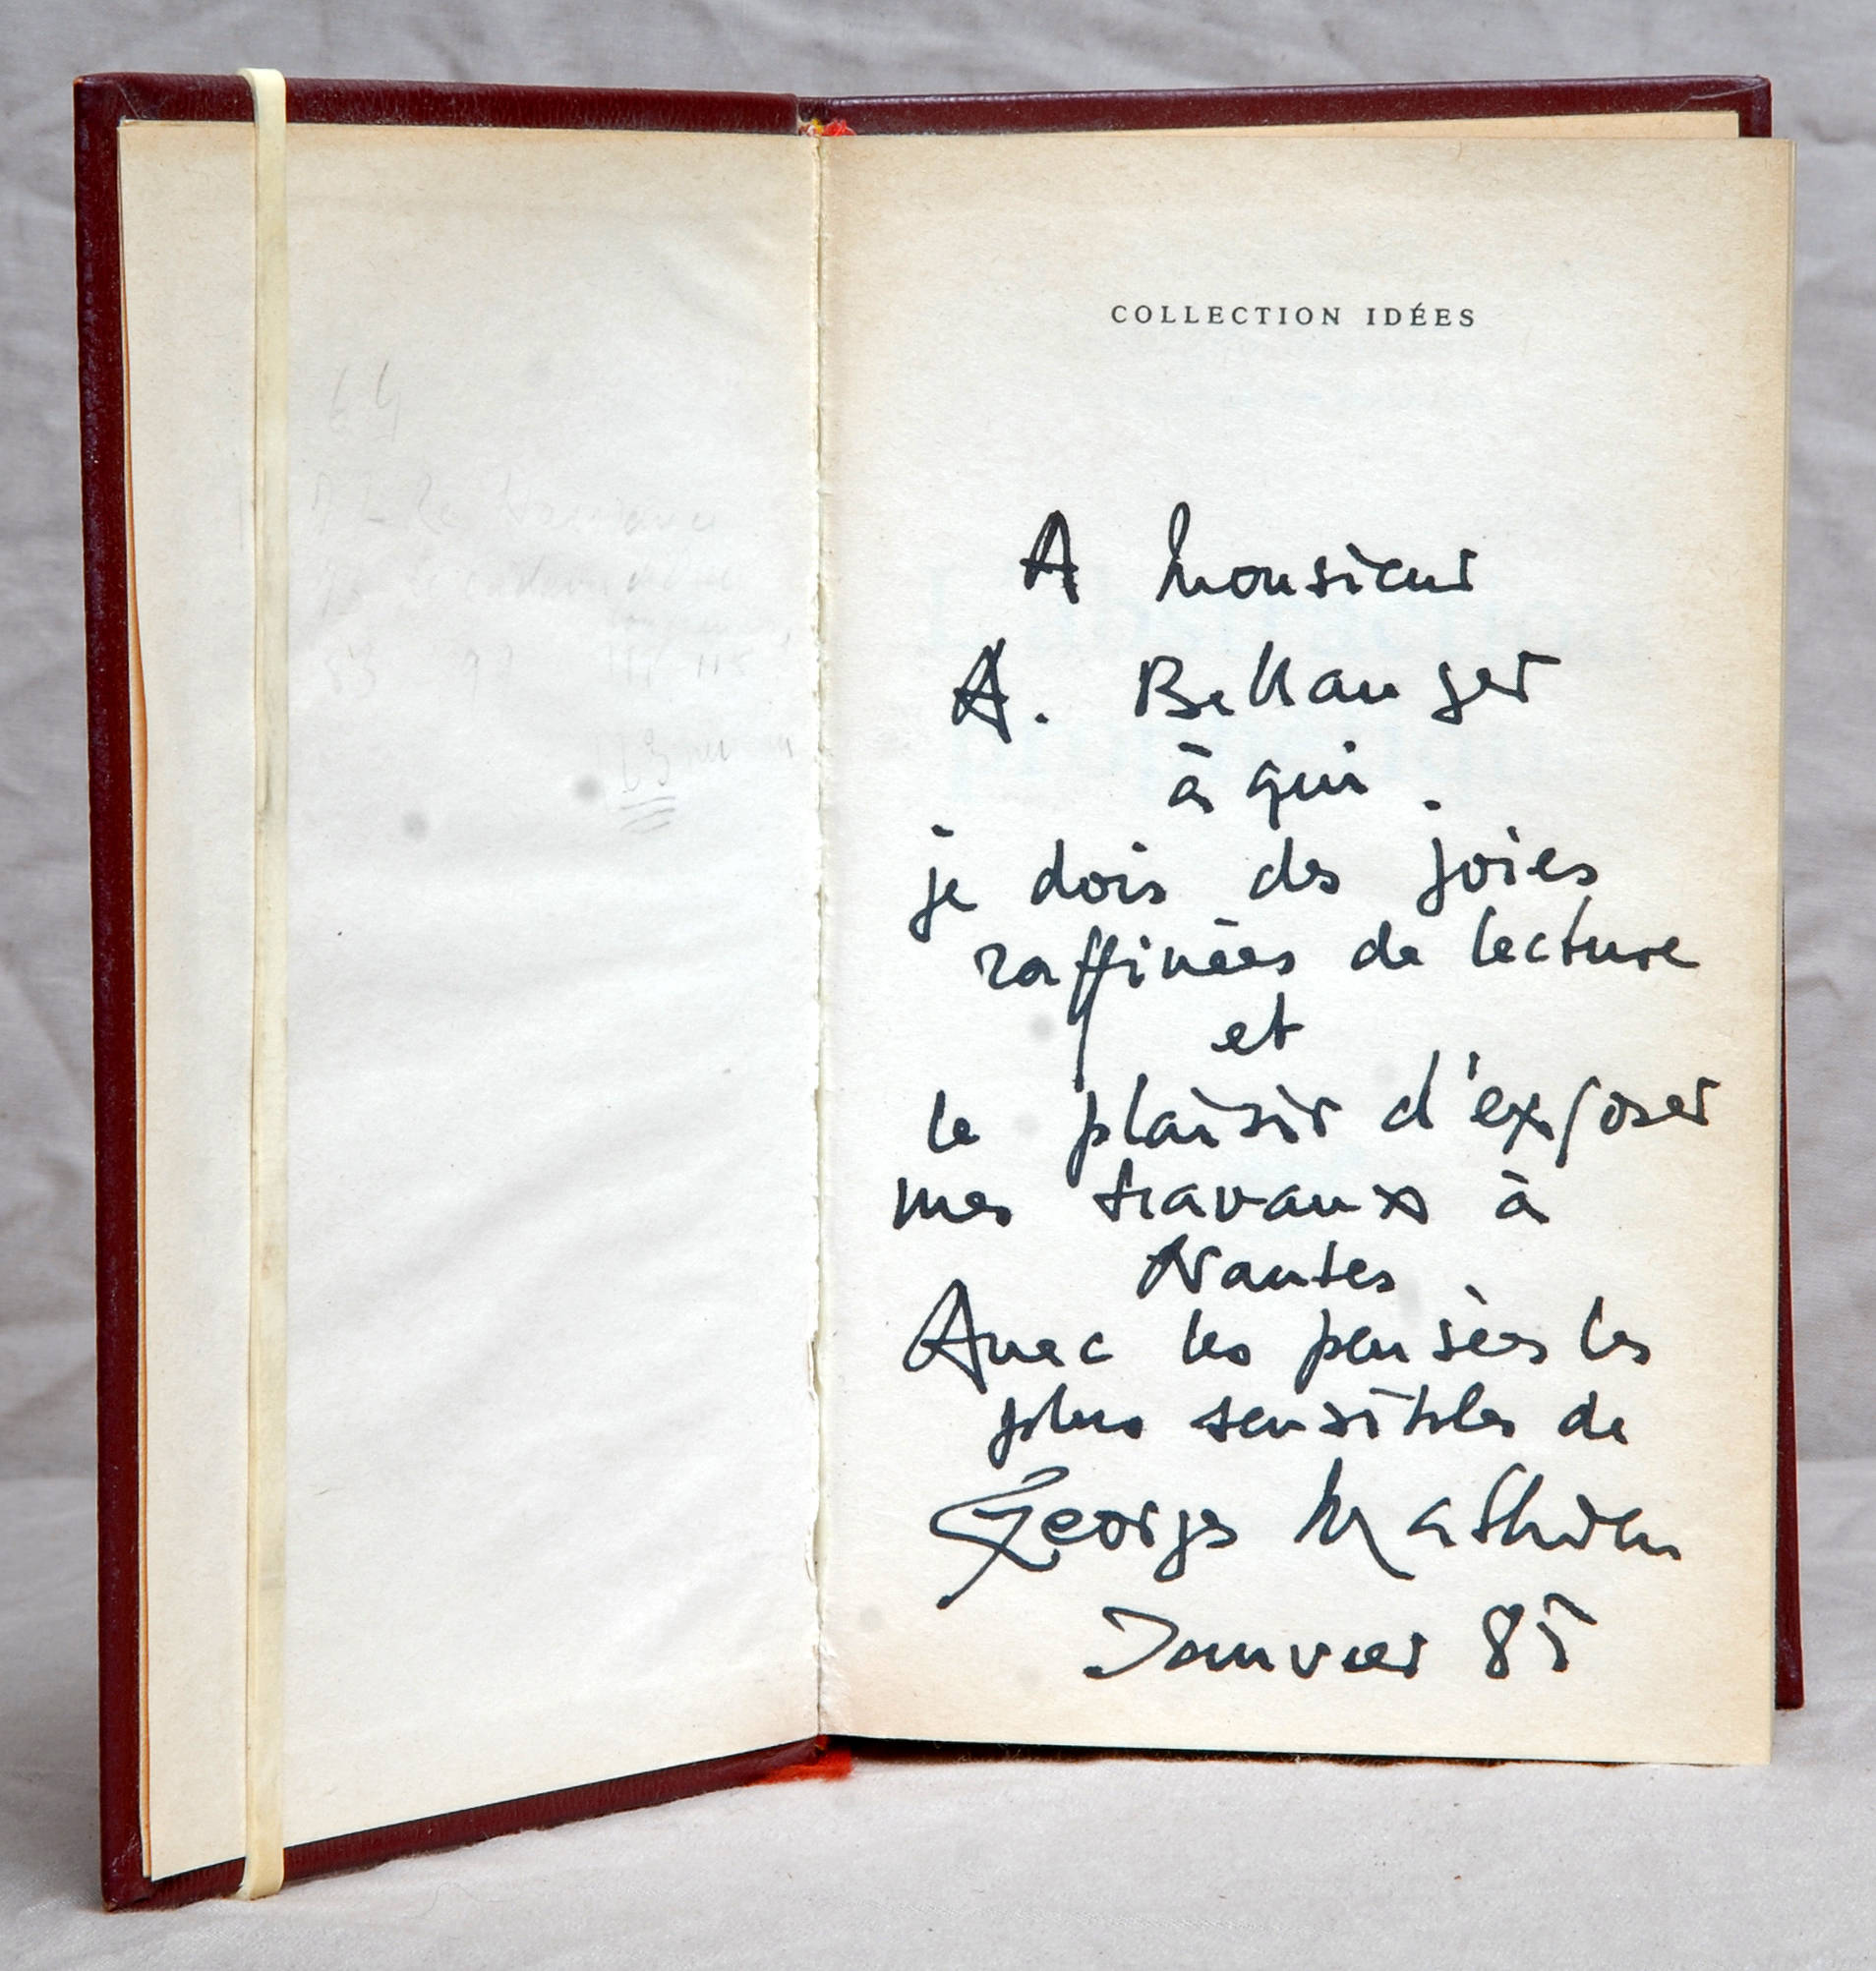 64
COLLECTION IDÉES
A Monsieur
A. Bellanger
à qui
je dois des joies
raffinées de lecture
et
le plaisir d'exposer
mes travaux à
Nantes
Avec les pensées les
plus sensibles de
Georges Mathieu
Janvier 85